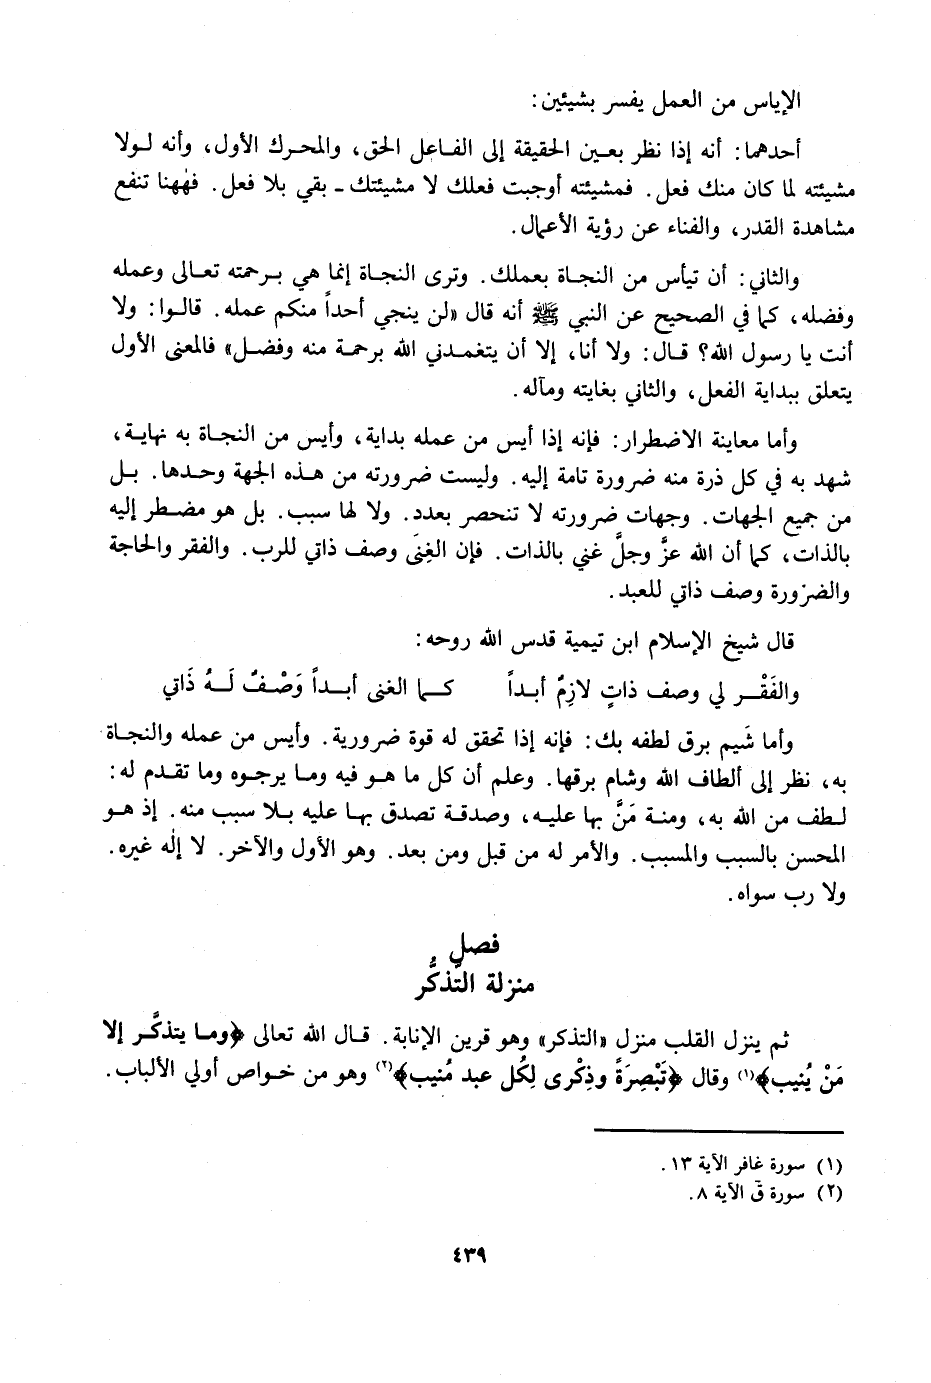 الإياس من العمل يفسر بشيئين:
أحدهما: أنه إذا نظر بعين الحقيقة إلى الفاعل الحق، والمحرك الأول، وأنه لولا
مشيئته لما كان منك فعل. فمشيئته أوجبت فعلك لا مشيئتك ـ بقي بلا فعل. فهٰهنا تنفع
مشاهدة القدر، والفناء عن رؤية الأعمال.
والثاني: أن تيأس من النجاة بعملك. وترى النجاة إنما هي برحمته تعالى وعمله
وفضله، كما في الصحيح عن النبي ﷺ أنه قال «لن ينجي أحداً منكم عمله. قالوا: ولا
أنت يا رسول الله؟ قال: ولا أنا، إلا أن يتغمدني الله برحمة منه وفضل» فالمعنى الأول
يتعلق ببداية الفعل، والثاني بغايته ومآله.
وأما معاينة الاضطرار: فإنه إذا أيس من عمله بداية، وأيس من النجاة به نهاية،
شهد به في كل ذرة منه ضرورة تامة إليه. وليست ضرورته من هذه الجهة وحدها. بل
من جميع الجهات. وجهات ضرورته لا تنحصر بعدد. ولا لها سبب. بل هو مضطر إليه
بالذات، كما أن الله عزَّ وجلَّ غني بالذات. فإن الغِنَى وصف ذاتي للرب. والفقر والحاجة
والضرورة وصف ذاتي للعبد.
قال شيخ الإسلام ابن تيمية قدس الله روحه:
والفَقْر لي وصف ذاتٍ لازِمٌ أبداً كما الغنى أبداً وَصْفٌ لَهُ ذَاتي
وأما شَيم برق لطفه بك: فإنه إذا تحقق له قوة ضرورية. وأيس من عمله والنجاة
به، نظر إلى ألطاف الله وشام برقها. وعلم أن كل ما هو فيه وما يرجوه وما تقدم له:
لطف من الله به، ومنة مَنَّ بها عليه، وصدقة تصدق بها عليه بلا سبب منه. إذ هو
المحسن بالسبب والمسبب. والأمر له من قبل ومن بعد. وهو الأول والآخر. لا إلٰه غيره.
ولا رب سواه.
فصل
منزلة التَّذكُّر
ثم ينزل القلب منزل «التذكر» وهو قرين الإنابة. قال الله تعالى ﴿وما يتذكَّر إلا
مَنْ يُنيب﴾(١) وقال ﴿تَبْصِرَةً وذِكْرى لِكُل عبد مُنيب﴾(٢) وهو من خواص أولي الألباب.
(١) سورة غافر الآية ١٣.
(٢) سورة قٓ الآية ٨.
٤٣٩